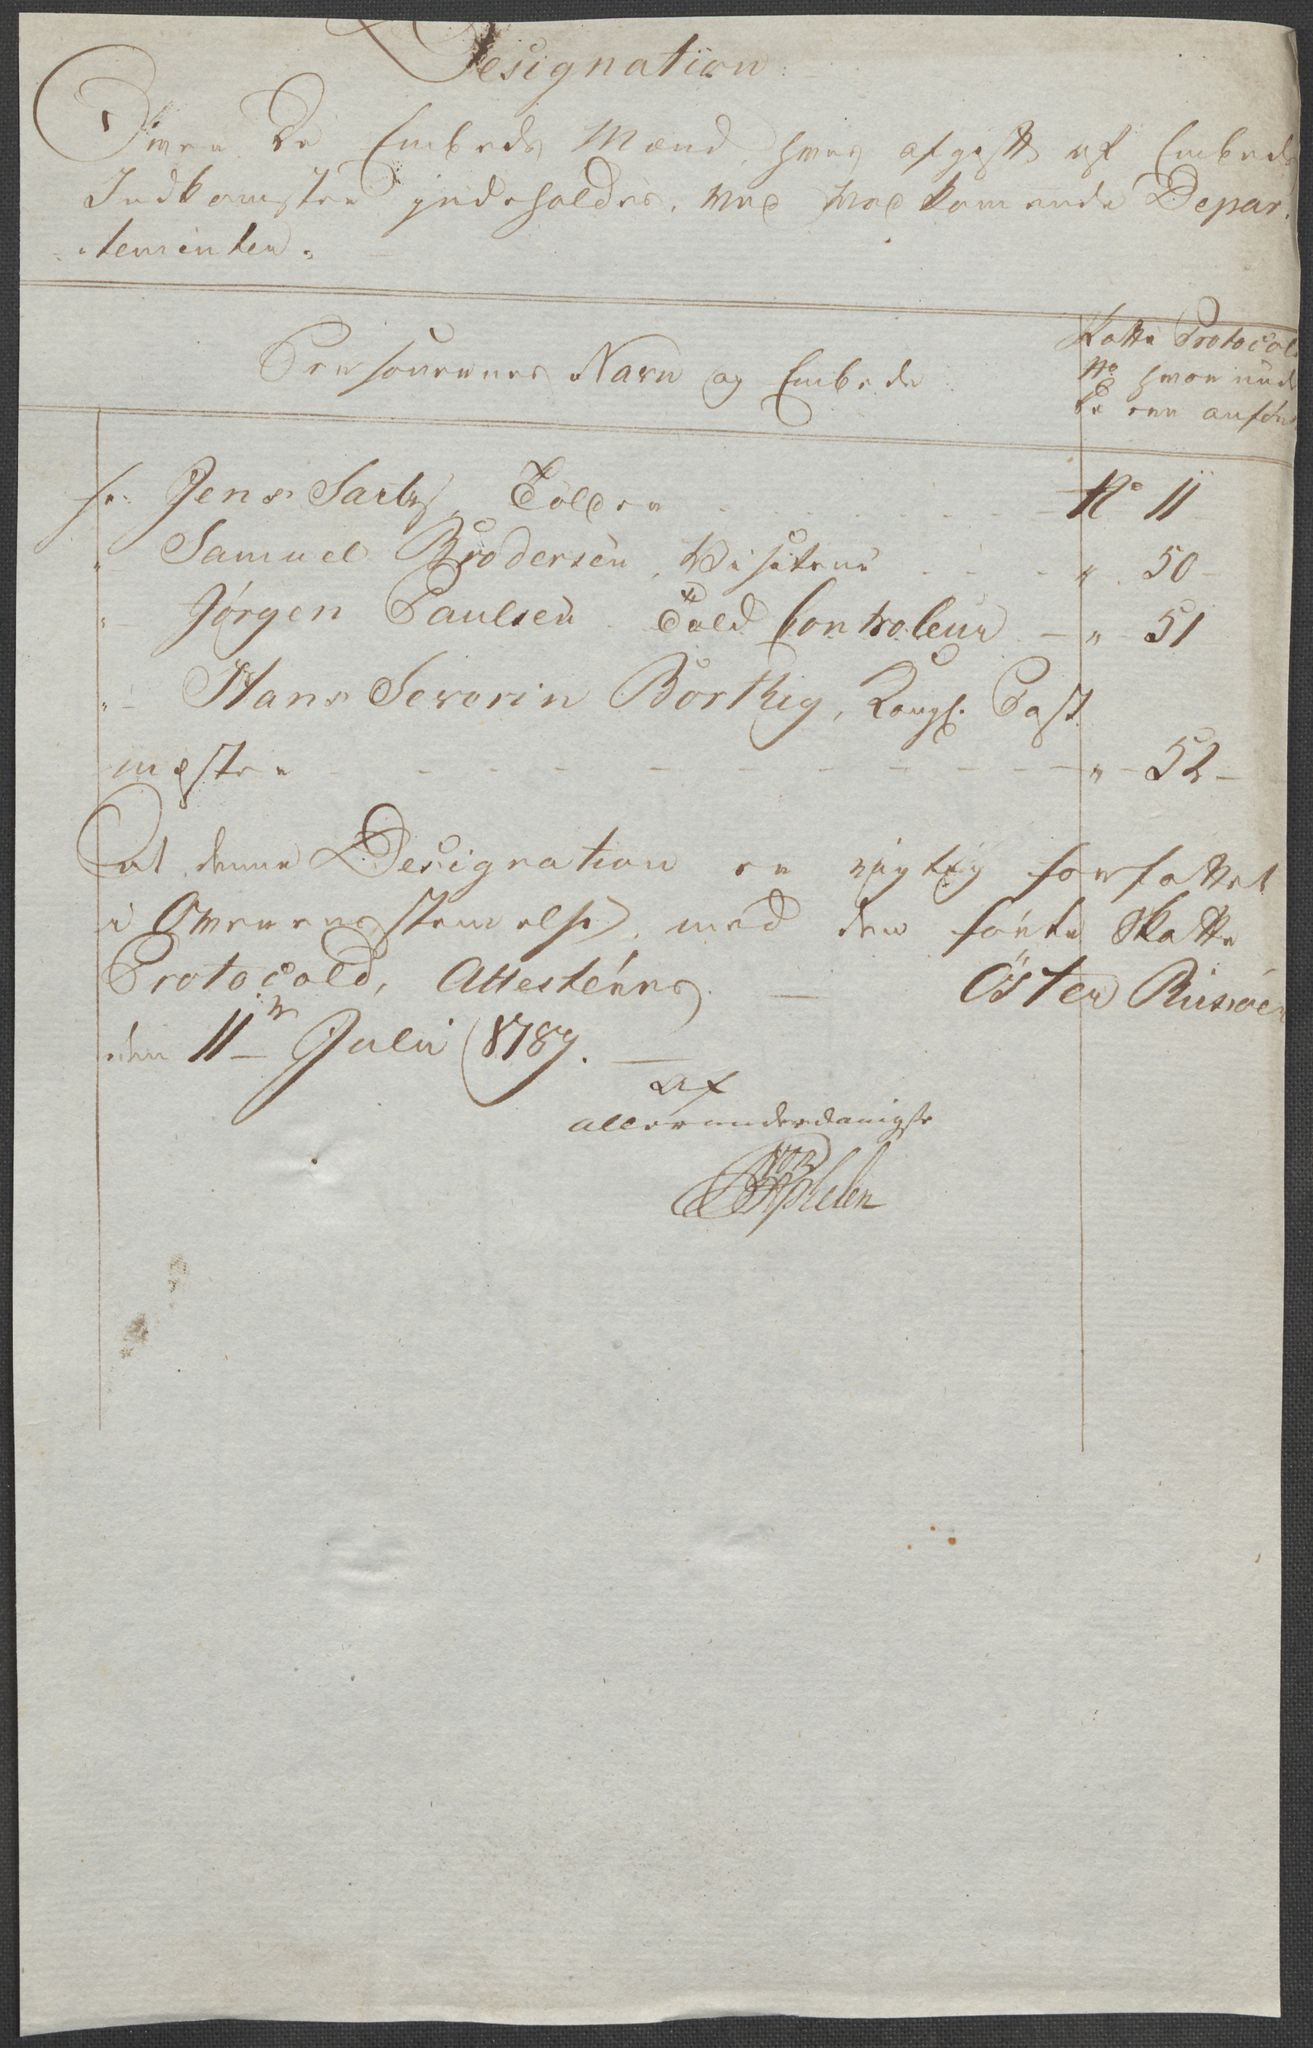 Designation
Over De Embeds Mænd, hvis afgift af Embeds
Indkomster jndeholdes, ved vedkommende Depar-
tementer.
Personernes Navn og Embede
Skatte Protocol
No hvorunder
De ere anført
Hr. Jens Tolder No 11
" Samuel Brodersen, Visiteur " 50
" Jørgen Paulsen Told Controleur " 51
" Hans Severin Borthig, Kongl. Post
mester " 52
At denne Designation er rigtig forfattet
i Overeensstemelse med den førte Skatte
Protocold, Attesteres Öster Riisöer
den 11te Julii 1789.
af
allerunderdanigst